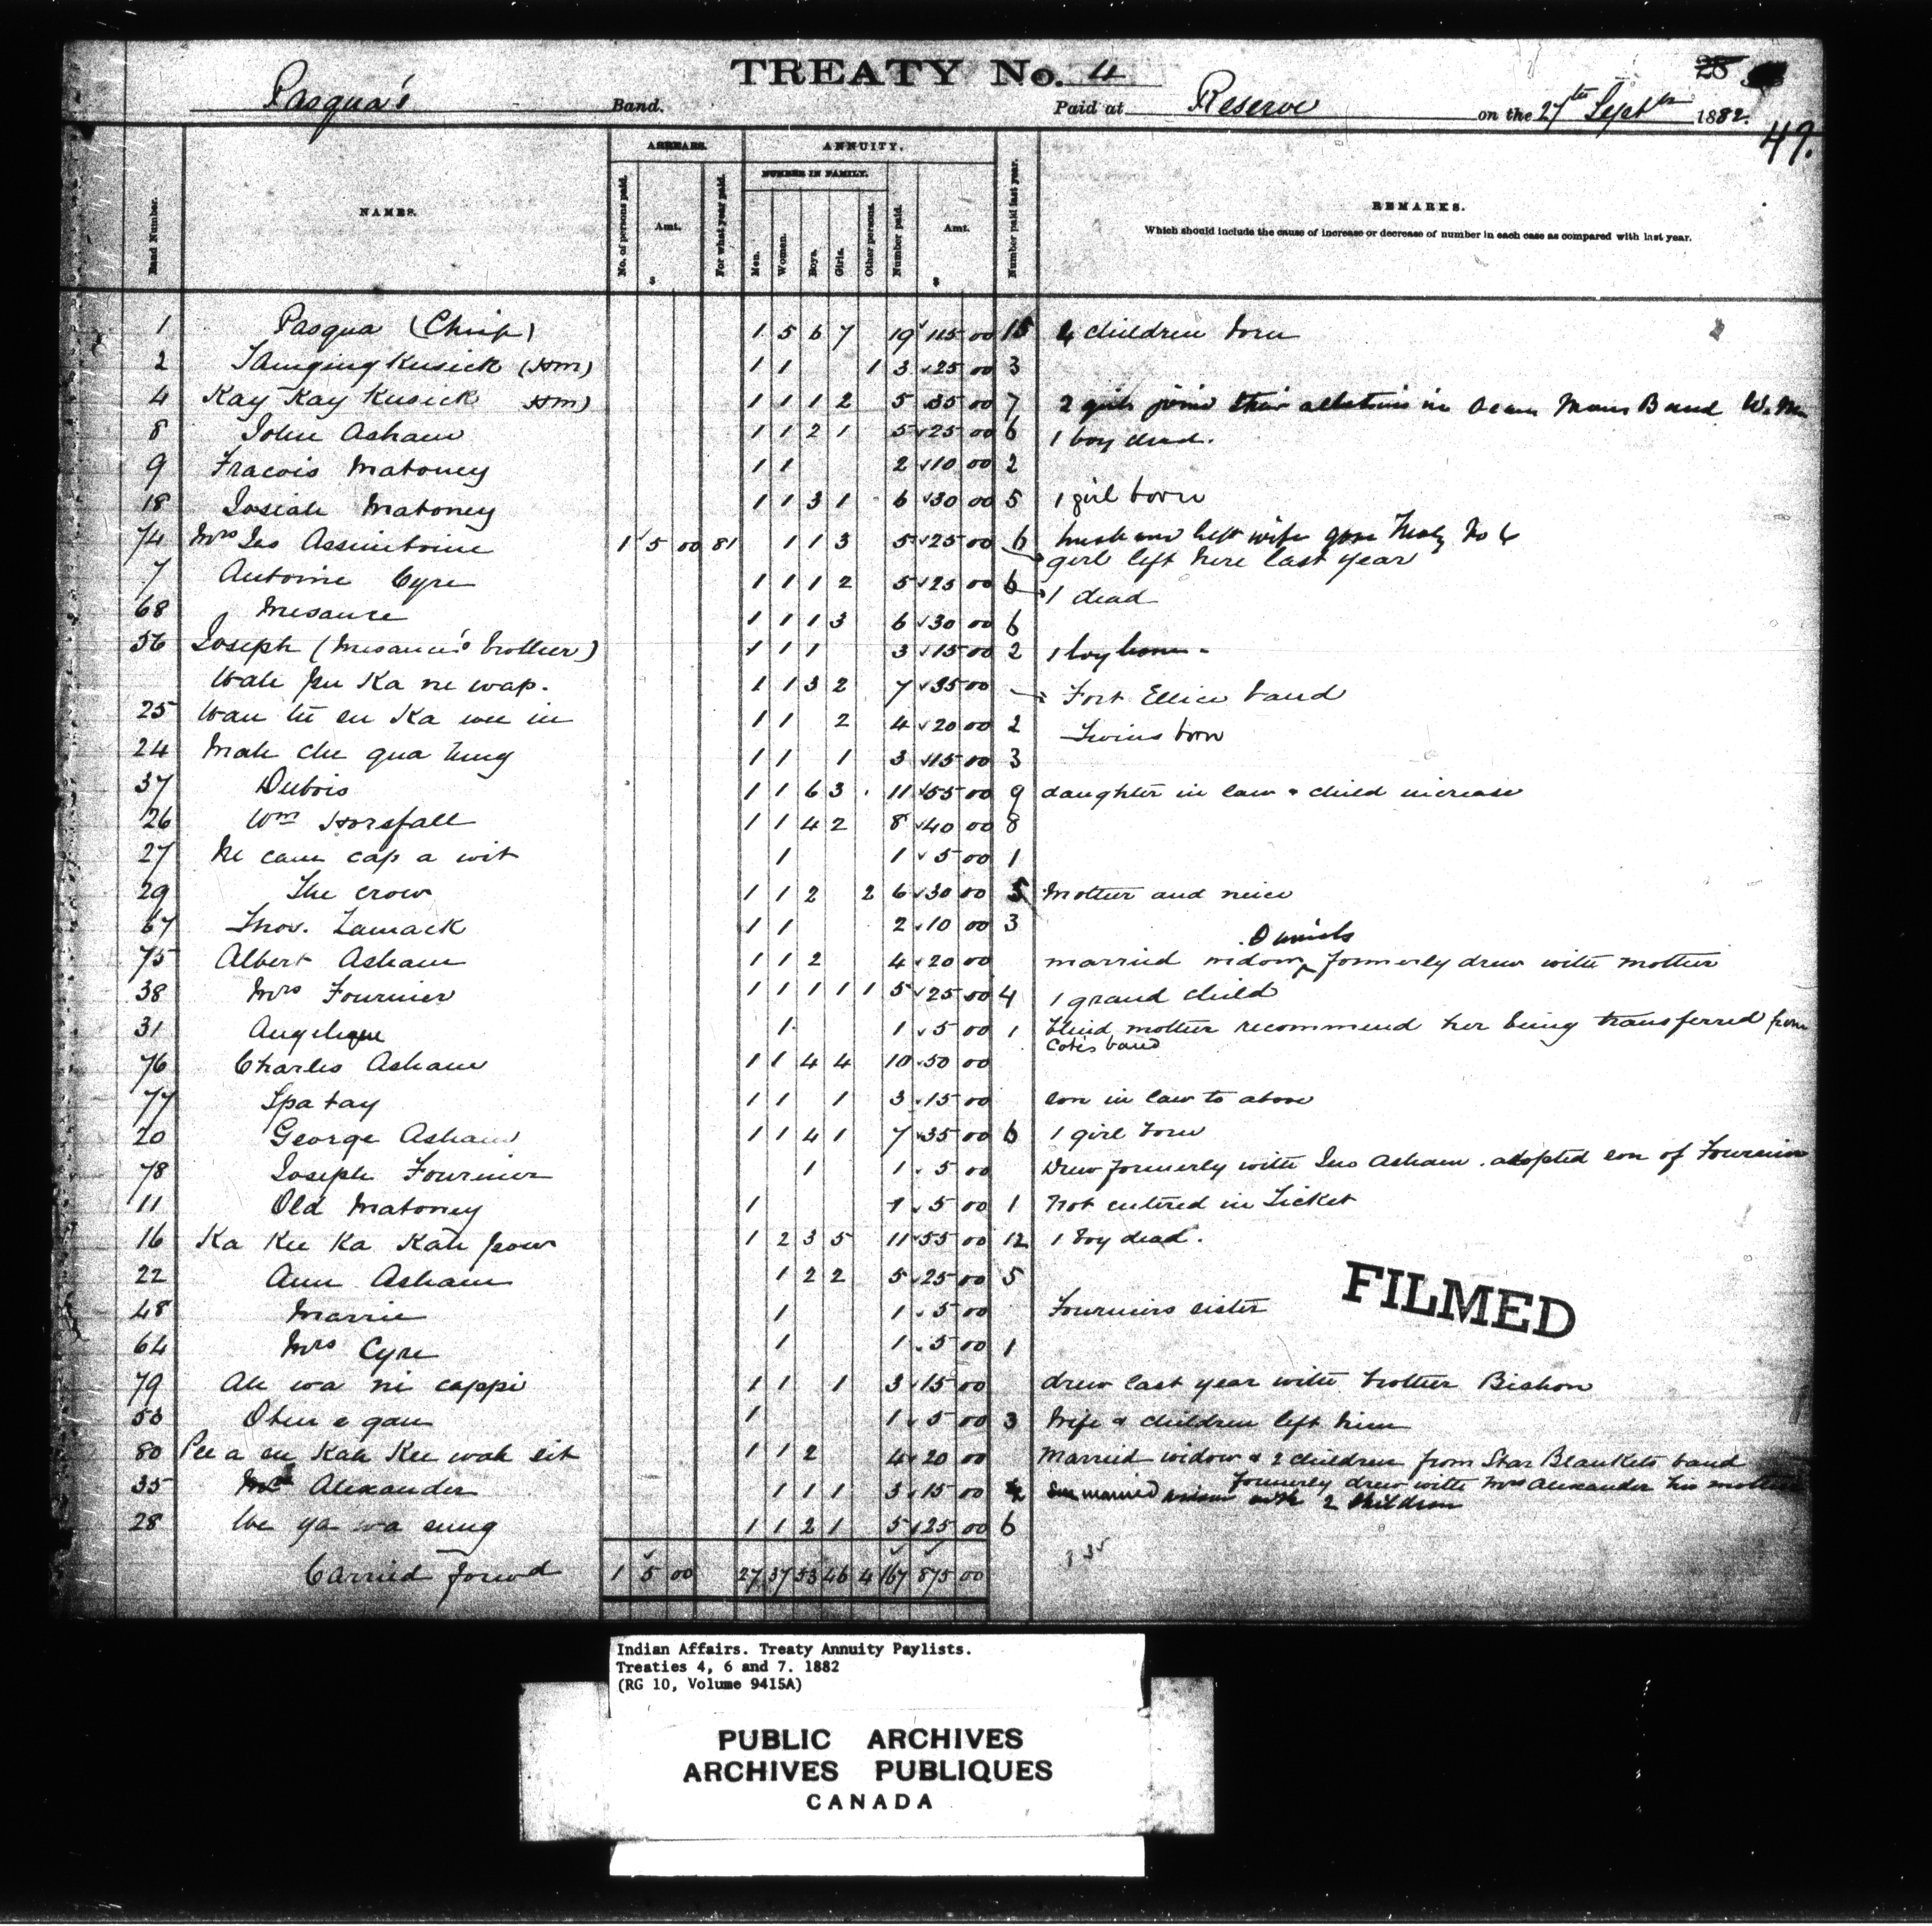 TREATY No. 4
Pasqua's Band. Paid at Reserve on the 27th Septbr 1882.
28
49.
Band Number. NAMES. ARREARS. No. of persons paid. Amt. $ For what year paid. ANNUITY. NUMBER IN FAMILY. Men. Women. Boys. Girls. Other persons. Number paid. Amt. $ Number paid last year. REMARKS.
Which should include the cause of increase or decrease of number in each case as compared with last year.
1 Pasqua (Chief) 1 5 6 7 19 115 00 15 4 children born
2 Kusick (Hm) 1 1 1 3 25 00 3
4 Kay Kay Kusick Hm) 1 1 1 2 5 35 00 7 2 girls Band
8 John Asham 1 1 2 1 5 25 00 6 1 boy dead.
9 Fracois Mahoney 1 1 2 10 00 2
18 Josiah Mahoney 1 1 3 1 6 30 00 5 1 girl born
74 Mrs Jas Assiniboine 1 5 00 81 1 1 3 5 25 00 6 husband left wife gone Treaty No
girl left here last year
7 Antoine Cyre 1 1 1 2 5 25 00 6 1 dead
68 Mesance 1 1 1 3 6 30 00 6
56 Joseph (Mesance's brother) 1 1 1 3 15 00 2 1 boy born
Wah pu Ka ne wap. 1 1 3 2 7 35 00 Fort Ellice band
25 Wau tu en Ka wee in 1 1 2 4 20 00 2 Twins born
24 Mah che qua ung 1 1 1 3 15 00 3
37 Dubois 1 1 6 3 11 55 00 9 daughter in law & child increase
26 Wm Horsfall 1 1 4 2 8 40 00 8
27 Ne cau cap a wit 1 1 5 00 1
29 The crow 1 1 2 2 6 30 00 5 Mother and neice
67 Thos. Lamack 1 1 2 10 00 3
75 Albert Asham 1 1 2 4 20 00 married widow formerly drew with mother
38 Mrs Fournier 1 1 1 1 1 5 25 00 4 1 grand child
31 Angelique 1 1 5 00 1 blind mother recommend her being transferred from
Cotes band
76 Charles Asham 1 1 4 4 10 50 00
77 Spa tay 1 1 1 3 15 00 son in law to above
20 George Asham 1 1 4 1 7 35 00 6 1 girl born
78 Joseph Fournier 1 1 5 00 Drew formerly with Jno Asham. adopted son of Fournier
11 Old Mahoney 1 1 5 00 1 Not entered in Ticket
16 Ka Kee Ka Kah pow 1 2 3 5 11 55 00 12 1 boy dead.
22 Ann Asham 1 2 2 5 25 00 5
48 Marrie 1 1 5 00 Fourniers sister
64 Mrs Cyre 1 1 5 00 1
79 Ah wa ni cappi 1 1 1 3 15 00 drew last year with brother Bishon
Oken e gan 1 1 5 00 3 Wife & children left him
80 Pee a en Kah Kee wah sit 1 1 2 4 20 00 Married widow & 2 children from Star Blankets band
formerly drew with Mrs Alexander his mother
35 Alexander 1 1 1 3 15 00 married with 2 children
28 We ya wa sung 1 1 2 1 5 25 00 6
Carried forwd 1 5 00 27 37 53 46 4 167 875 00
FILMED
Indian Affairs. Treaty Annuity Paylists.
Treaties 4, 6 and 7. 1882
(RG 10, Volume 9415A)
PUBLIC ARCHIVES
ARCHIVES PUBLIQUES
CANADA